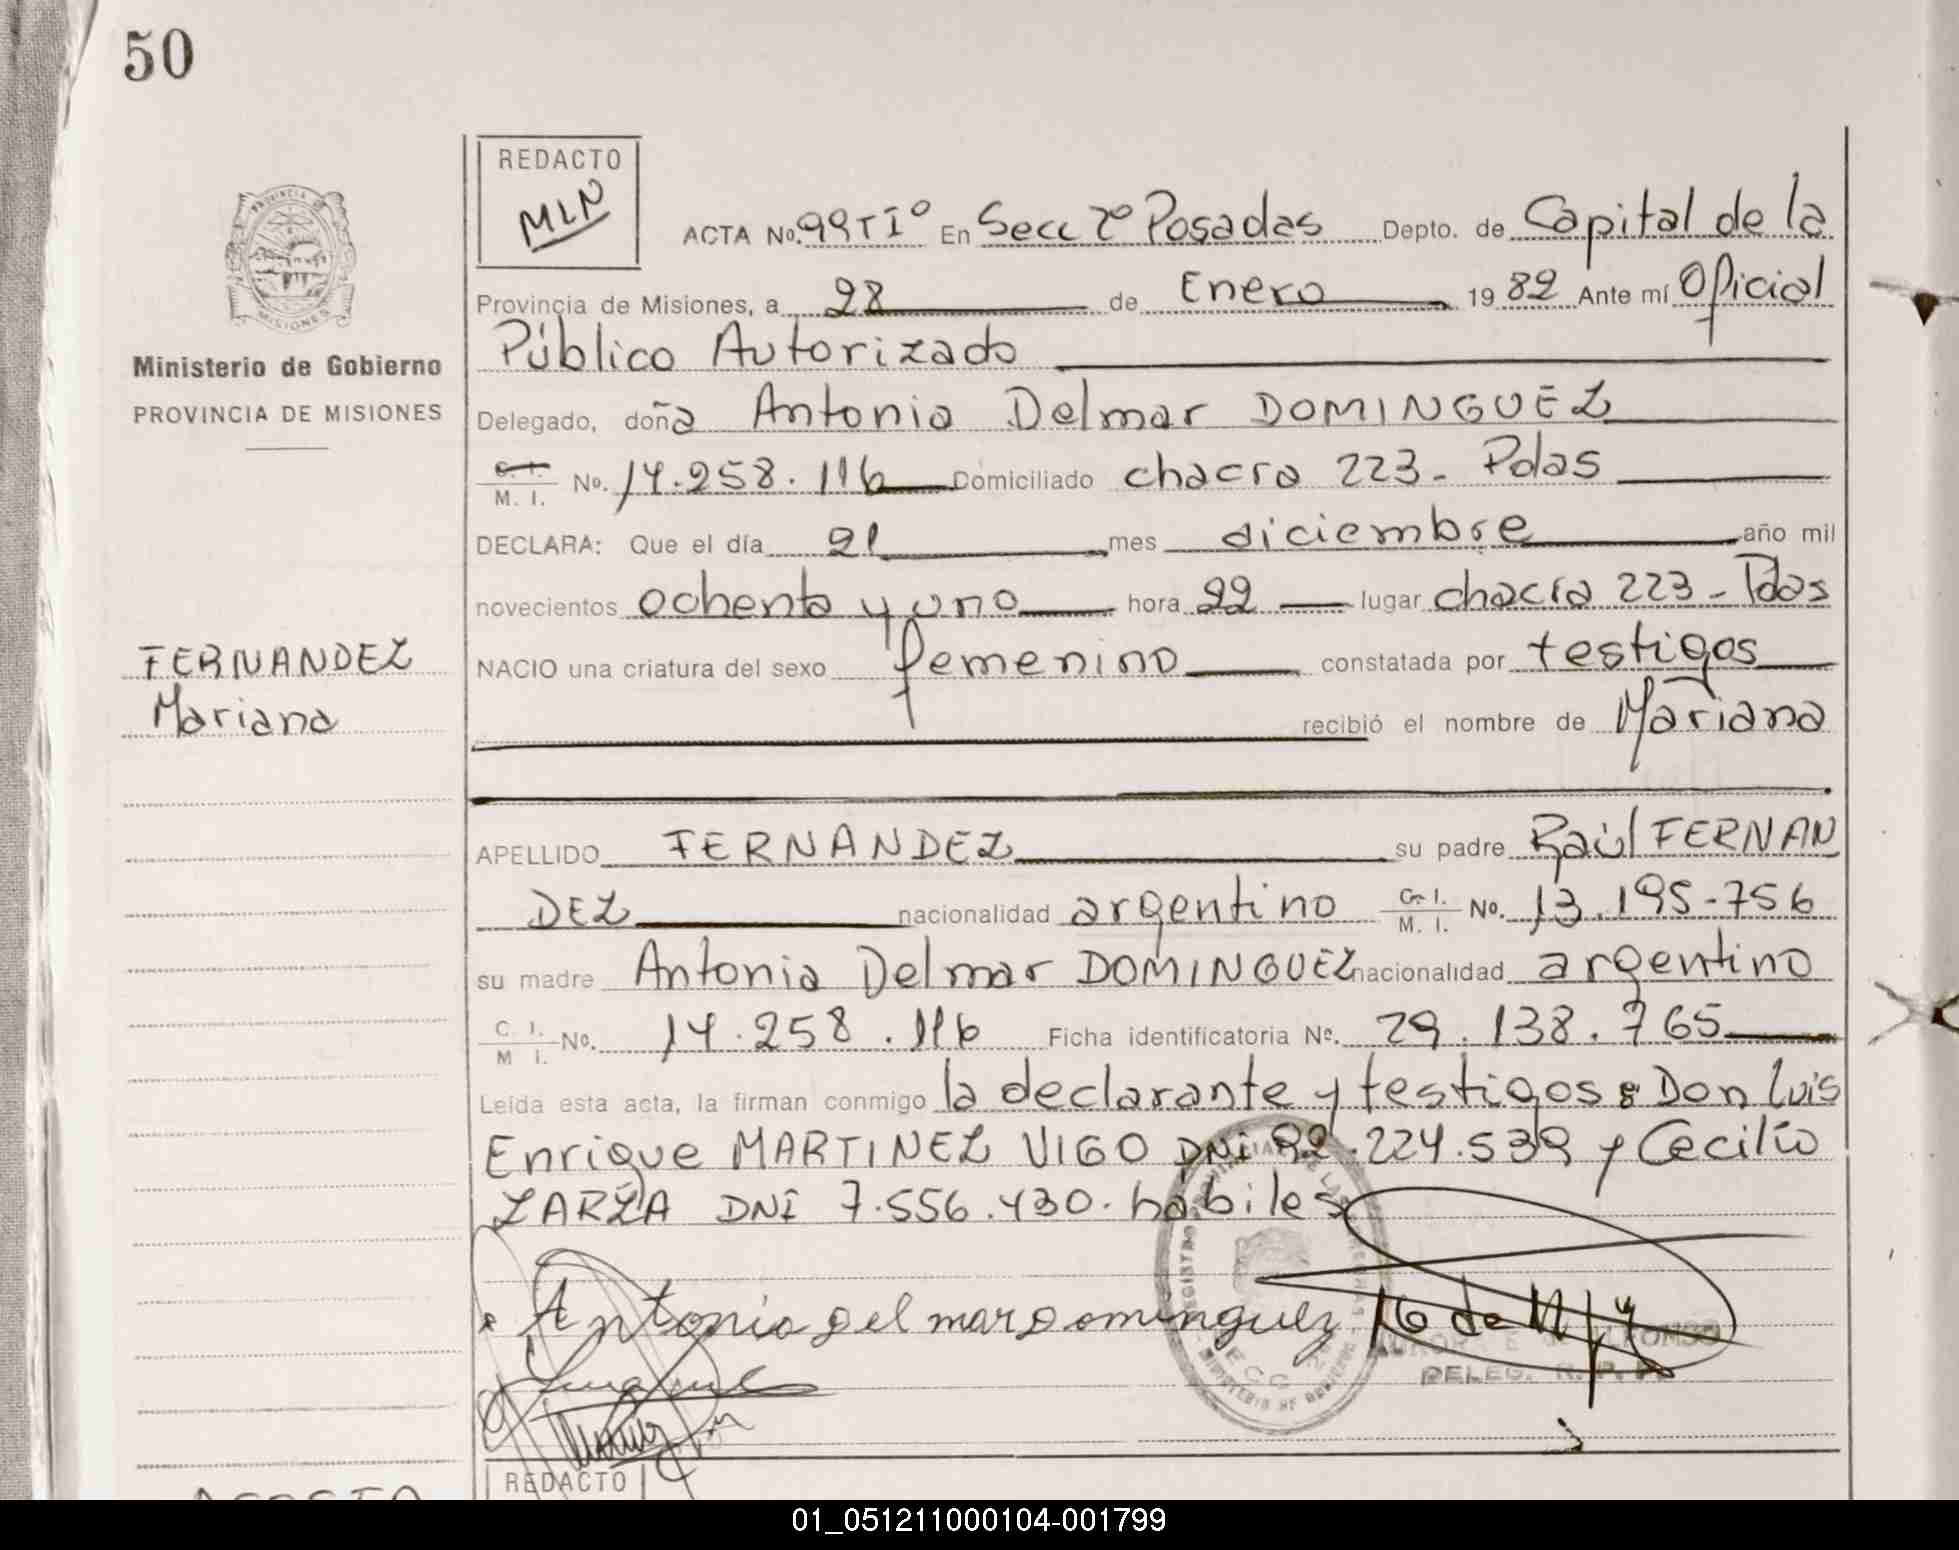 50
REDACTO
MLN
ACTA No. 99 TIº En Secc 7º Posadas Depto. de Capital de la
Provincia de Misiones, a 28 de Enero 1982 Ante mí Oficial
Público Autorizado
Ministerio de Gobierno
PROVINCIA DE MISIONES
Delegado, doña Antonia Delmar DOMINGUEZ
C. I. / M. I. No. 14.258.116 Domiciliado chacra 223 - Pdas
DECLARA: Que el día 21 mes diciembre año mil
novecientos ochenta y uno hora 22 lugar chacra 223 - Pdas
FERNANDEZ
Mariana
NACIO una criatura del sexo femenino constatada por testigos
recibió el nombre de Mariana
APELLIDO FERNANDEZ su padre Raúl FERNAN
DEZ nacionalidad argentino C. I. / M. I. No. 13.195-756
su madre Antonia Delmar DOMINGUEZ nacionalidad argentino
C. I. / M I. No. 14.258.116 Ficha identificatoria Nº. 29.138.765
Leída esta acta, la firman conmigo la declarante y testigos: Don Luis
Enrique MARTINEZ VIGO DNI 92.224.539 y Cecilio
ZARZA DNI 7.556.430. habiles
Antonia delmar dominguez
DELEG. R. P. P.
REDACTO
01_051211000104-001799